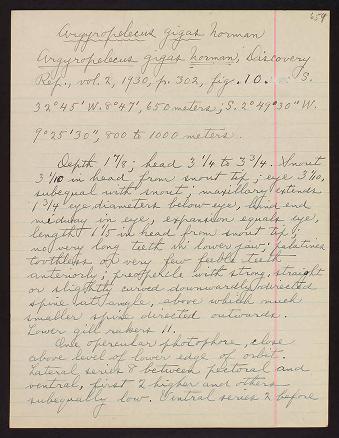 659
Argyropelecus gigas Norman
Argyropelecus gigas Norman, Discovery
Rep., vol. 2, 1930, p. 302, fig. 10. S.
32°45' W. 8°47', 650 meters; S. 2°49'30" W.
9°25'30", 800 to 1000 meters.
Depth 1 1/8; head 3 1/4 to 3 3/4. Snout
3 1/10 in head from snout tip; eye 3 1/10,
subequal with snout; maxillary extends
1 3/4 eye diameters below eye, hind end
midway in eye, expansion equals eye,
length 1 1/5 in head from snout tip;
no very long teeth in lower jaw; palatines
toothless or very few feeble teeth
anteriorly; preopercle with strong, straight
or slightly curved downwardly directed
spine at angle, above which much
smaller spine directed outwards.
Lower gill rakers 11.
One opercular photophore, close
above level of lower edge of orbit.
Lateral series 8 between pectoral and
ventral, first 2 higher and others
subequally low. Ventral series 2 before